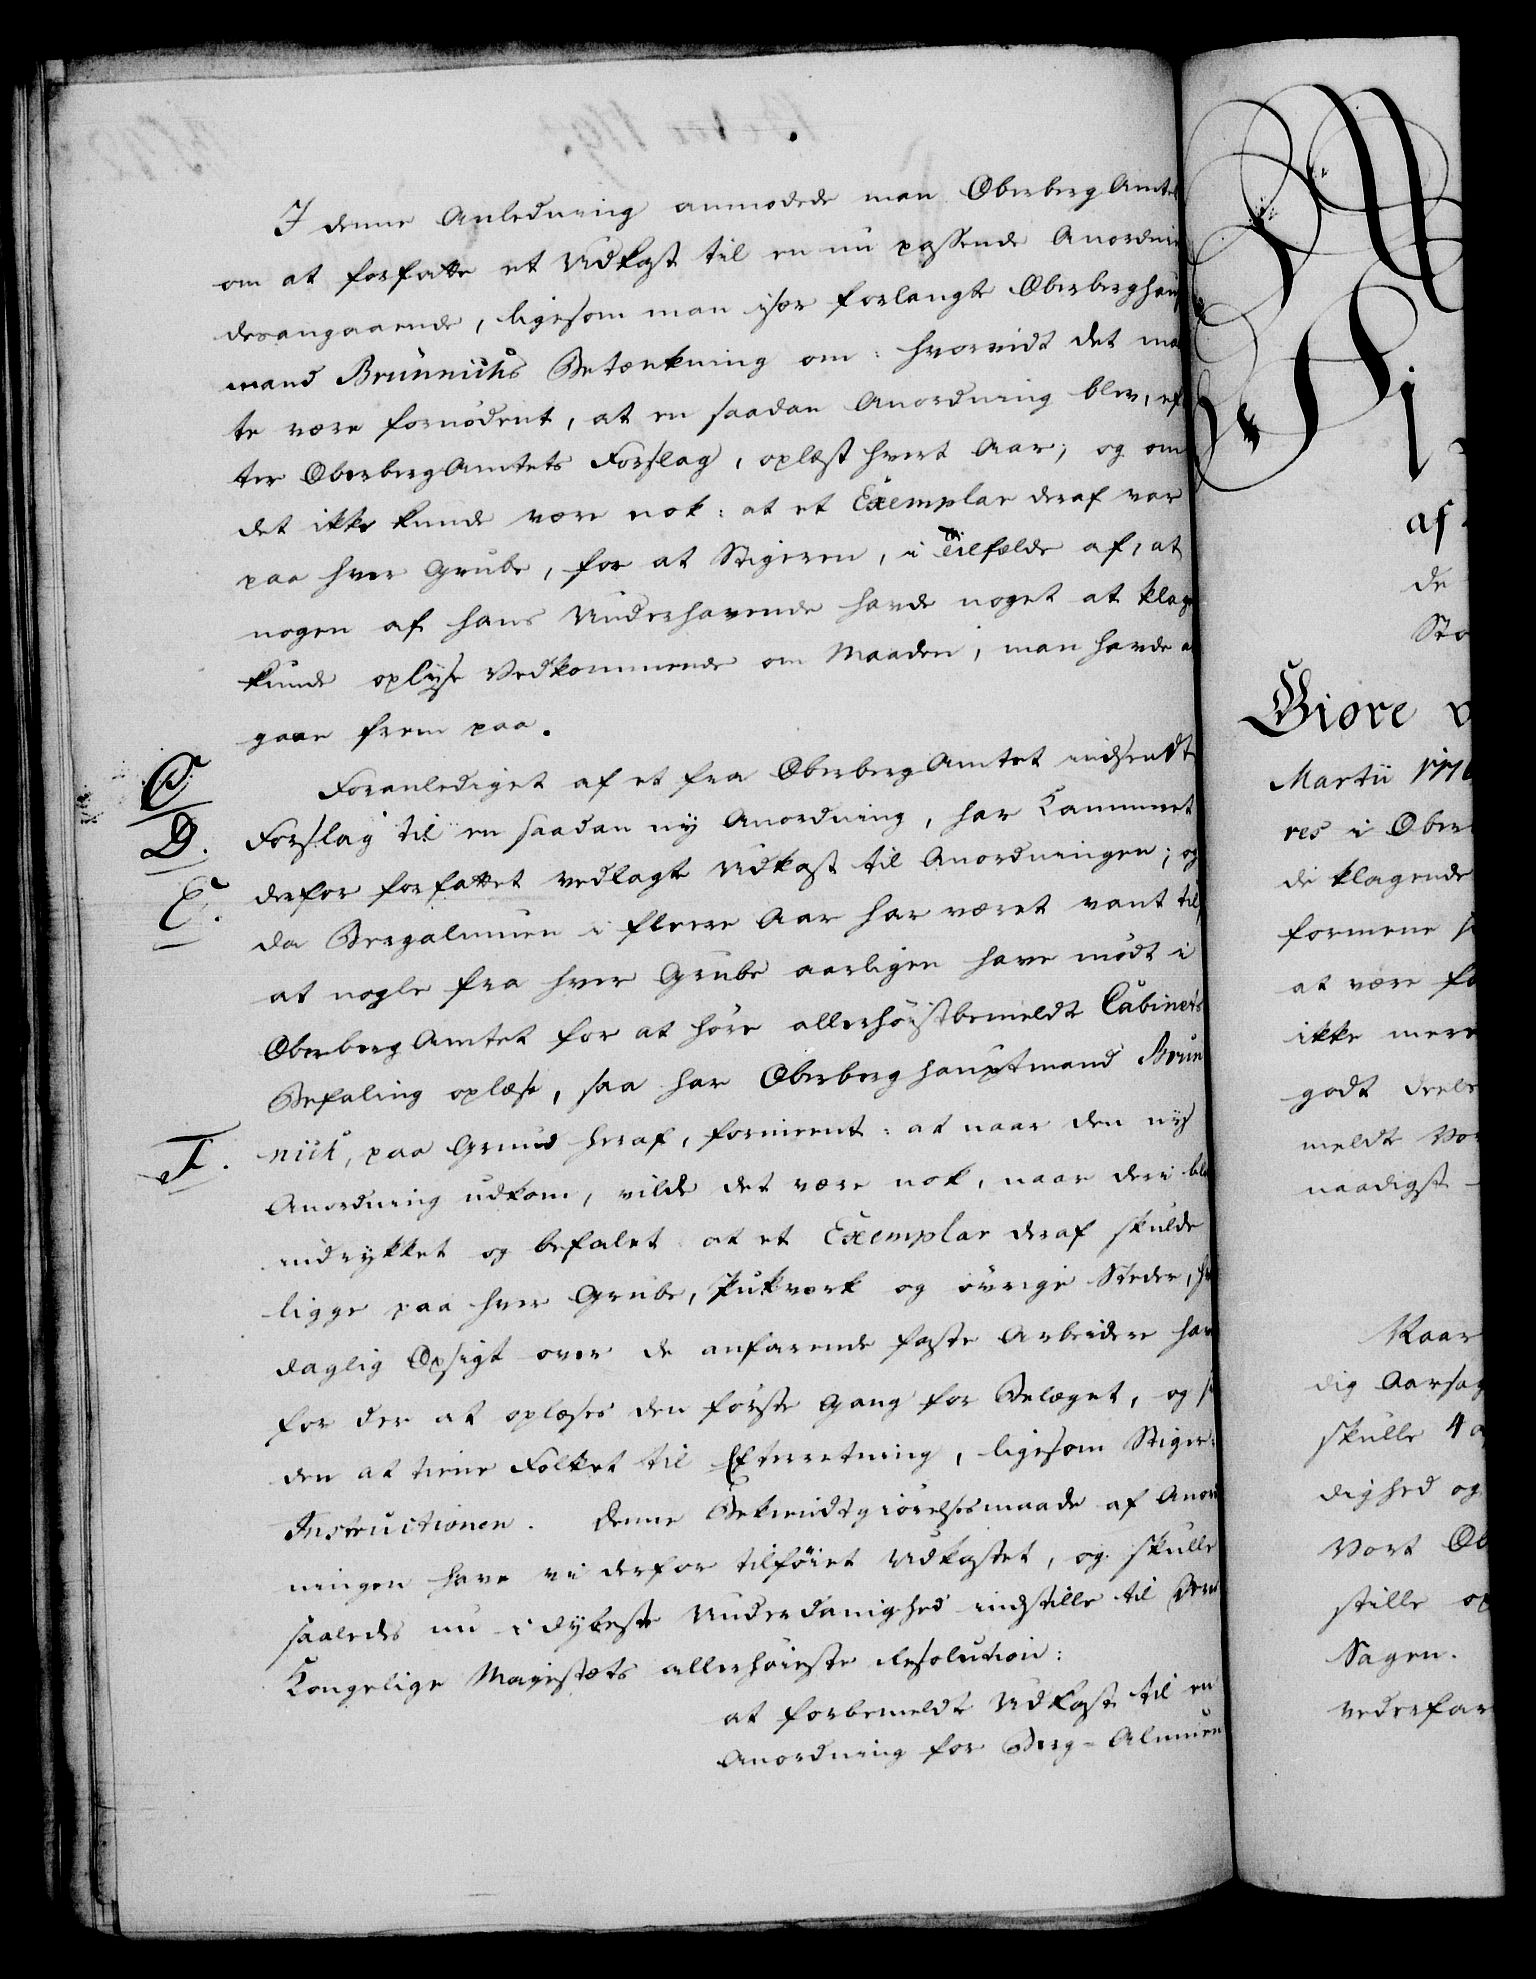 I denne Anledning anmodede man OberbergAmtet
om at forfatte et Udkast til en nu passende Anordni
desangaaende, ligesom man især forlangte Oberberghaupt
mand Brünnichs Betænkning om: hvorvidt det maa
te være fornödent, at en saadan Anordning blev, ef
ter OberbergAmtets Forslag, oplæst hvert Aar; og om
det ikke kunde være nok: at et Exemplar deraf var
paa hver Grube, for at Stigeren, i Tilfælde af, at
nogen af hans Underhavende havde noget at klage
kunde oplyse Vedkommende om Maaden, man havde a
gaae frem paa.
C.
Foranlediget af et fra OberbergAmtet indsendt
D.
Forslag til en saadan ny Anordning, har Kammeret
derfor forfattet vedlagte Udkast til Anordningen; og
E.
da Bergalmuen i fleere Aar har været vant til,
at nogle fra hver Grube aarligen have mödt i
OberbergAmtet for at höre allerhöistbemeldt Cabinets
Befaling oplæse, saa har Oberberghauptmand Brün
F.
nich, paa Grund heraf, formeent: at naar den nye
Anordning udkom, vilde det være nok, naar deri blev
indrykket og befalet at et Exemplar deraf skulde
ligge paa hver Grube, Pukværk og övrige Steder, hv
daglig Opsigt over de anfarende faste Arbeidere hav
for der at oplæses den förste Gang for Belæget, og si
den at tiene Folket til Efterretning, ligesom Stiger-
Instructionen. Denne Bekiendtgiörelsesmaade af Anord
ningen have vi derfor tilföiet Udkastet, og skulle
saaledes nu i dybeste Underdanighed indstille til Deres
Kongelige Majestæts allerhöieste Resolution:
at forbemeldte Udkast til en
Anordning for Berg-Almuen
af
de
Sto
Giöre v
Martii 177
res i Ober
de klagende
formene s
at være fo
ikke mere
godt deels
meldte Vor
naadigst
Naar
dig Aarsag
skulle 4 o
dighed og
Vort Ob
stille op
Sagen.
vederfar